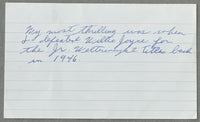 My most thrilling was when
I defeated Willie Joyce for
the Jr Welterweight Title back
in 1946